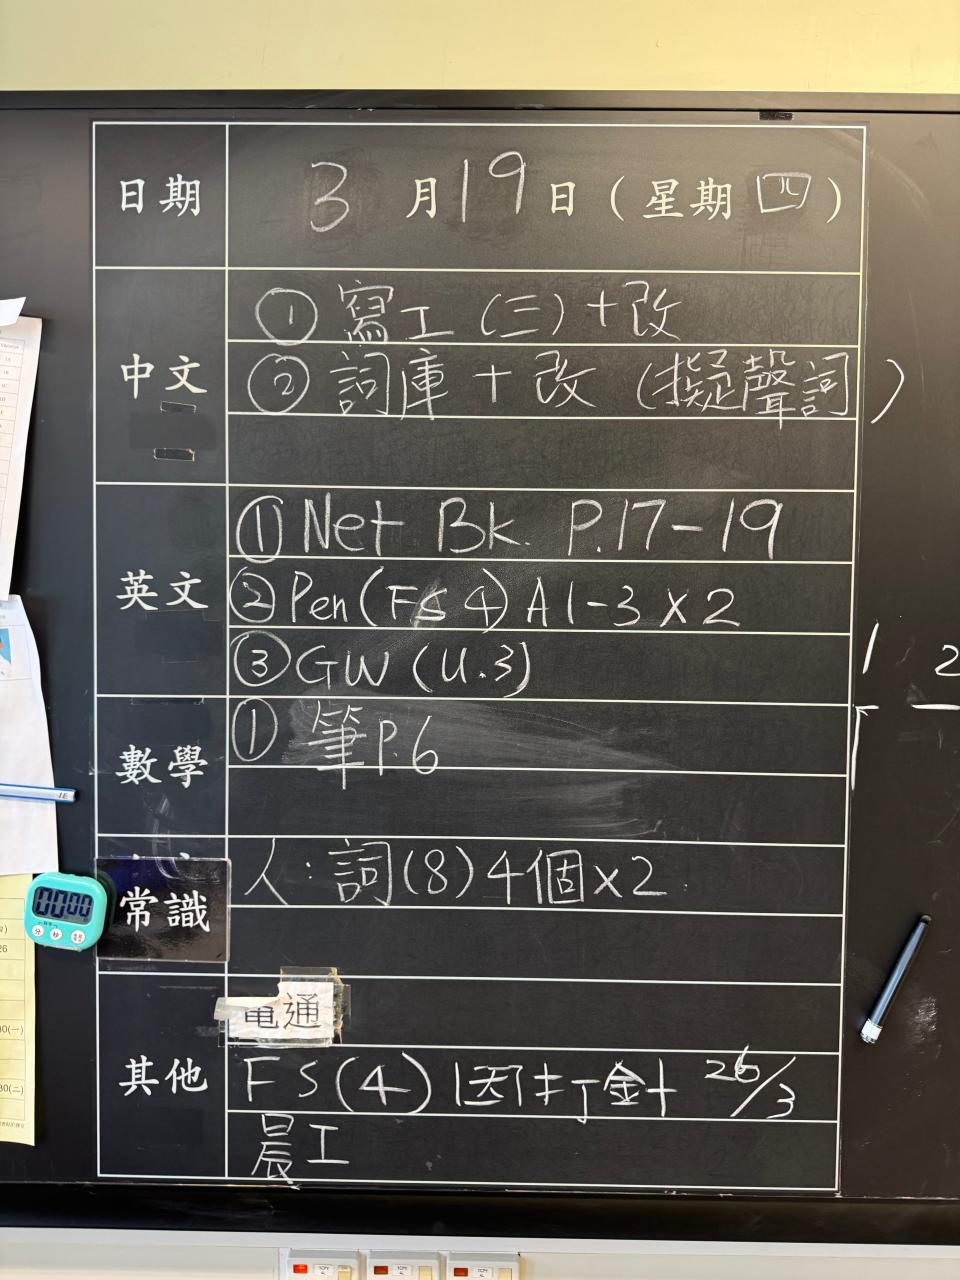 日期 3月19日(星期四)
中文
① 寫工(三)+改
② 詞庫+改(擬聲詞)
英文
① Net Bk. P.17-19
② Pen(FS 4) A1-3 x2
③ GW (U.3)
1 2
數學
① 筆P.6
常識
人:詞(8)4個x2
00:00
其他
電通
FS(4) 26/3
晨工